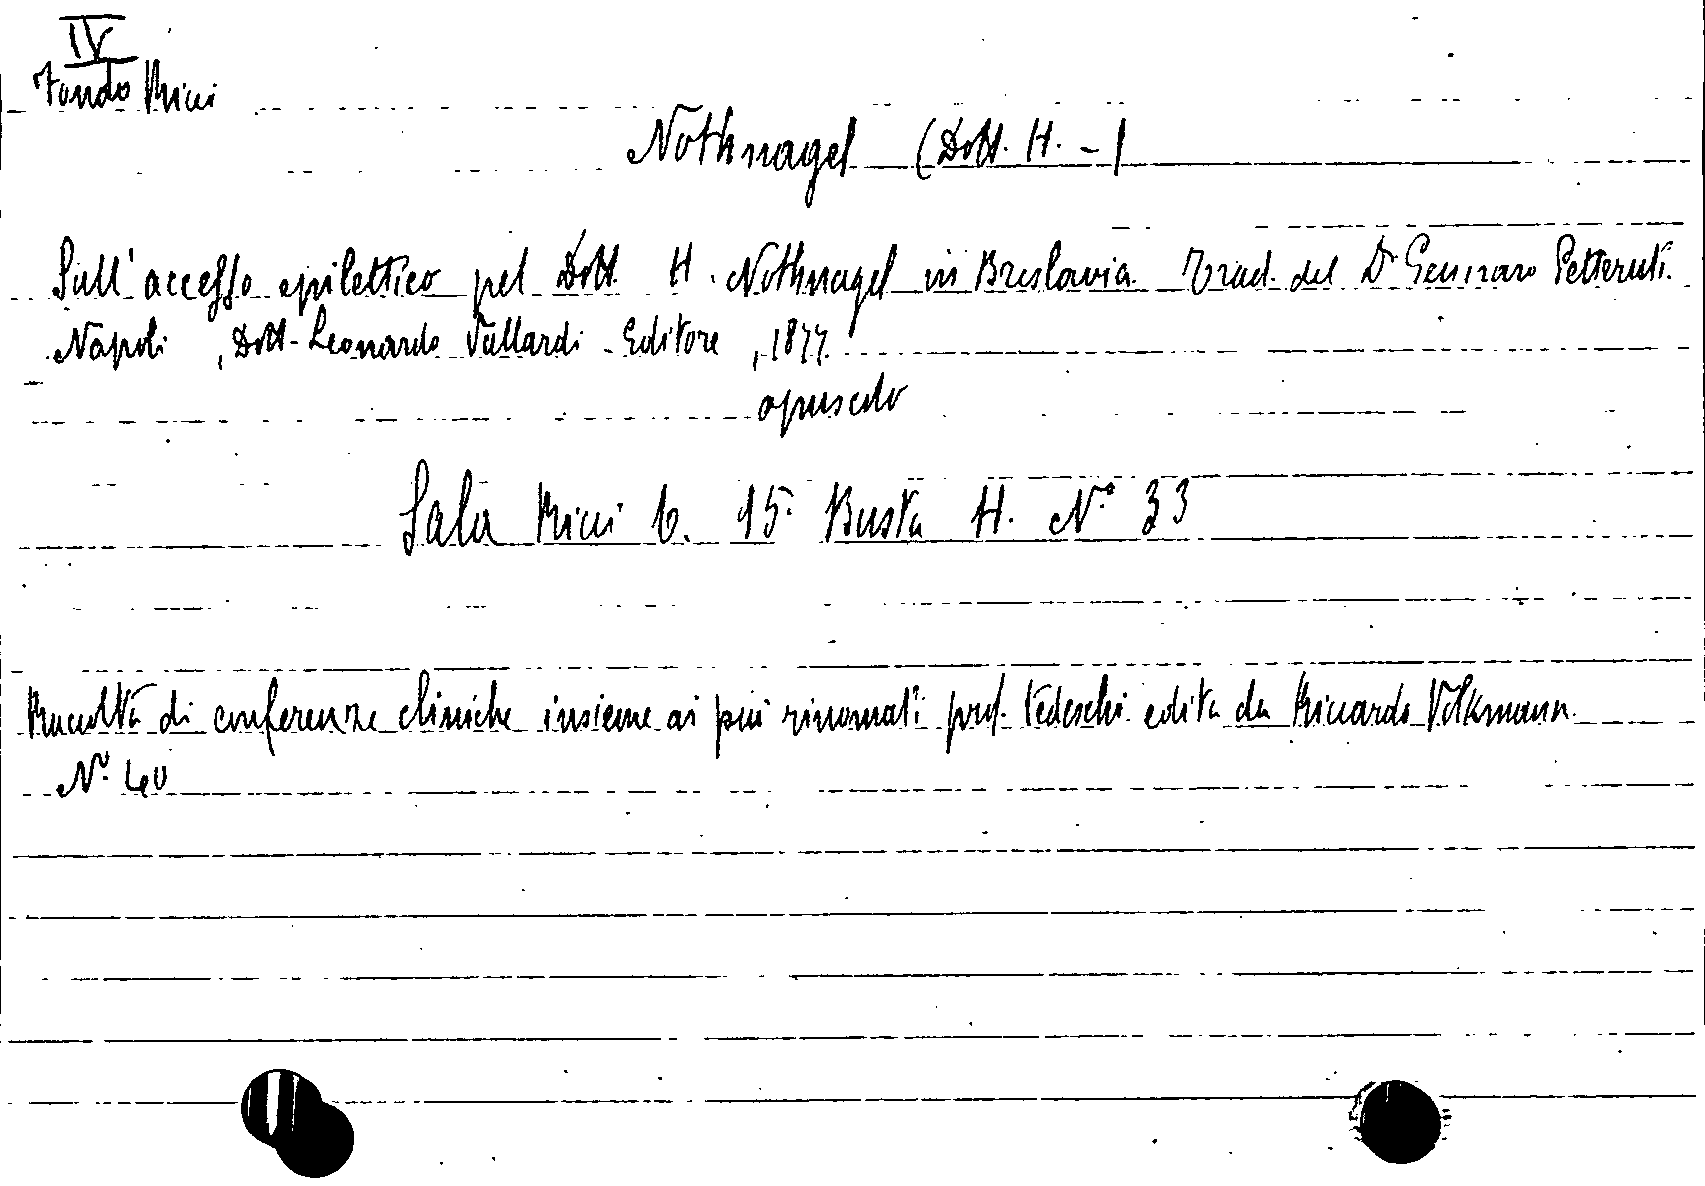 IV
Fondo Ricci
Nothnagel (Dott. H. -)
Sull'accesso epilettico pel Dott. H. Nothnagel in Breslavia Trad. del Dr Gennaro Petteruti.
Napoli, Dott. Leonardo Vallardi - Editore, 1877.
opuscolo
Sala Ricci 6. 15. Busta H. N.° 33
Raccolta di conferenze cliniche insieme ai più rinomati prof. tedeschi edita da Riccardo Volkmann
N.° 40